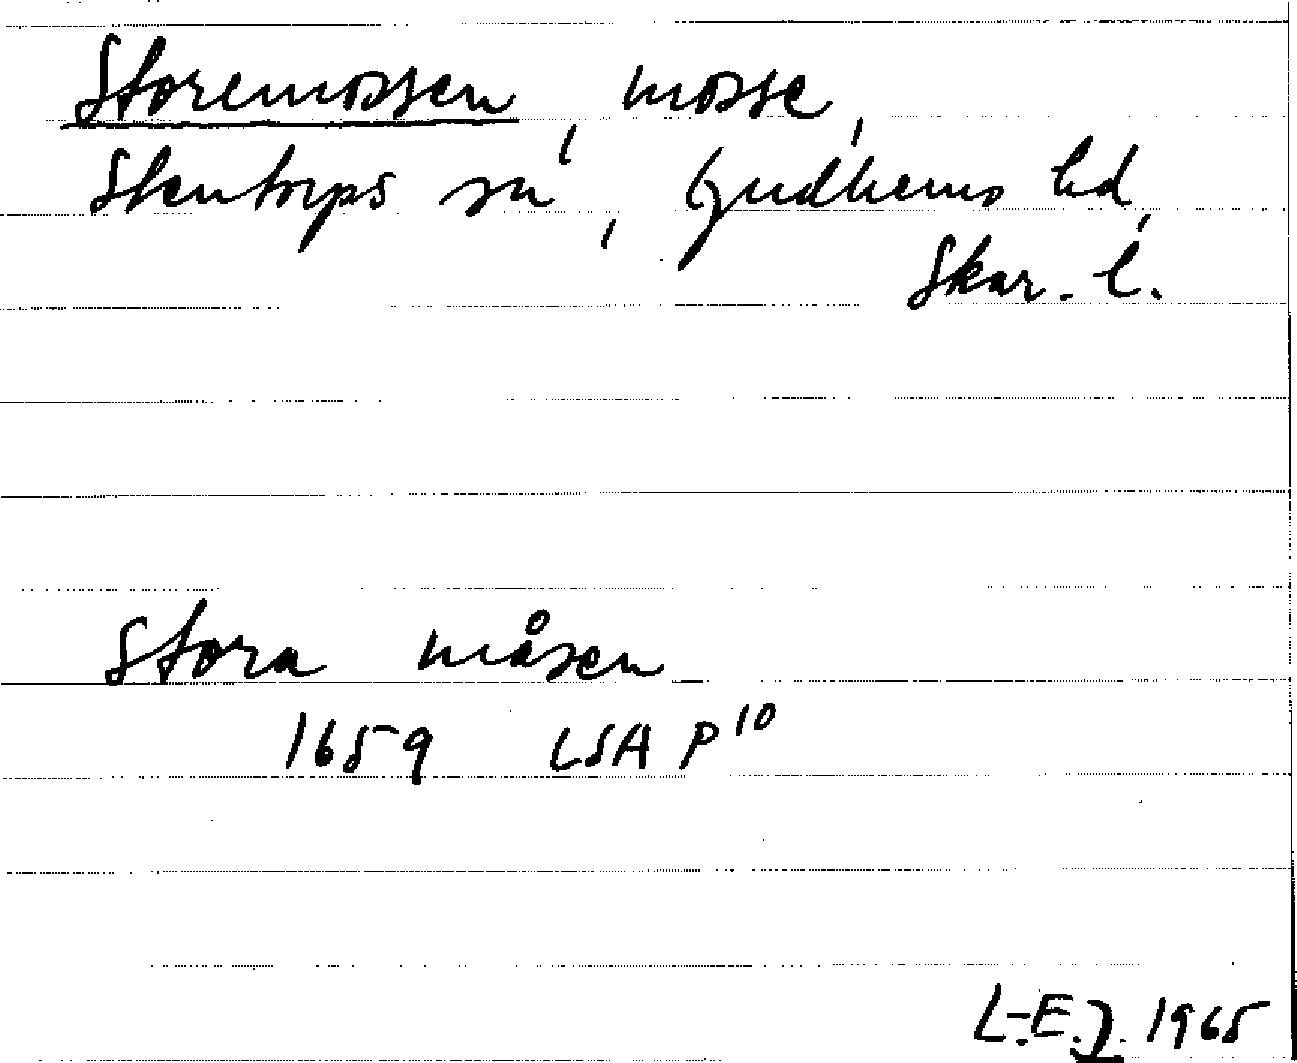 Storemossen, mosse,
Stentorps sn, Gudhems hd,
Skar. l.
Stora måsen
1659 LSA P¹⁰
L-E.J. 1965